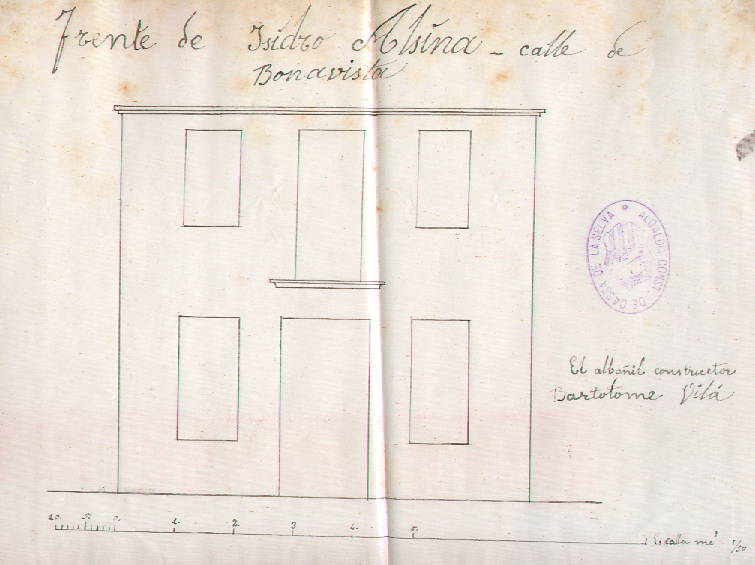 Frente de Isidro Alsina - calle de
Bonavista
ALCALDIA CONST. DE CASSA DE LA SELVA
El albañil constructor
Bartolome Vilá
10. 5. 0. 1. 2. 3 4. 5.
Escalla me 1/50